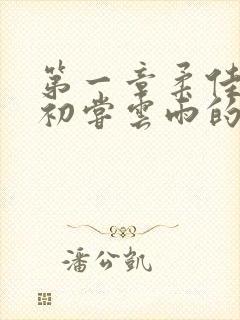 第一章柔佳
初尝云雨的
潘公凯